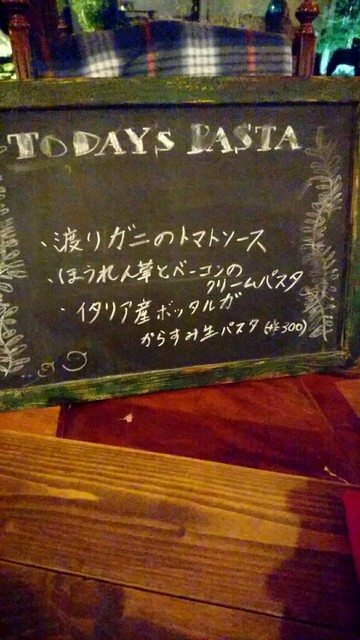 TODAYS PASTA
・渡りガニのトマトソース
・ほうれん草とベーコンの
クリームパスタ
・イタリア産ボッタルガ
からすみ生パスタ(+¥300)